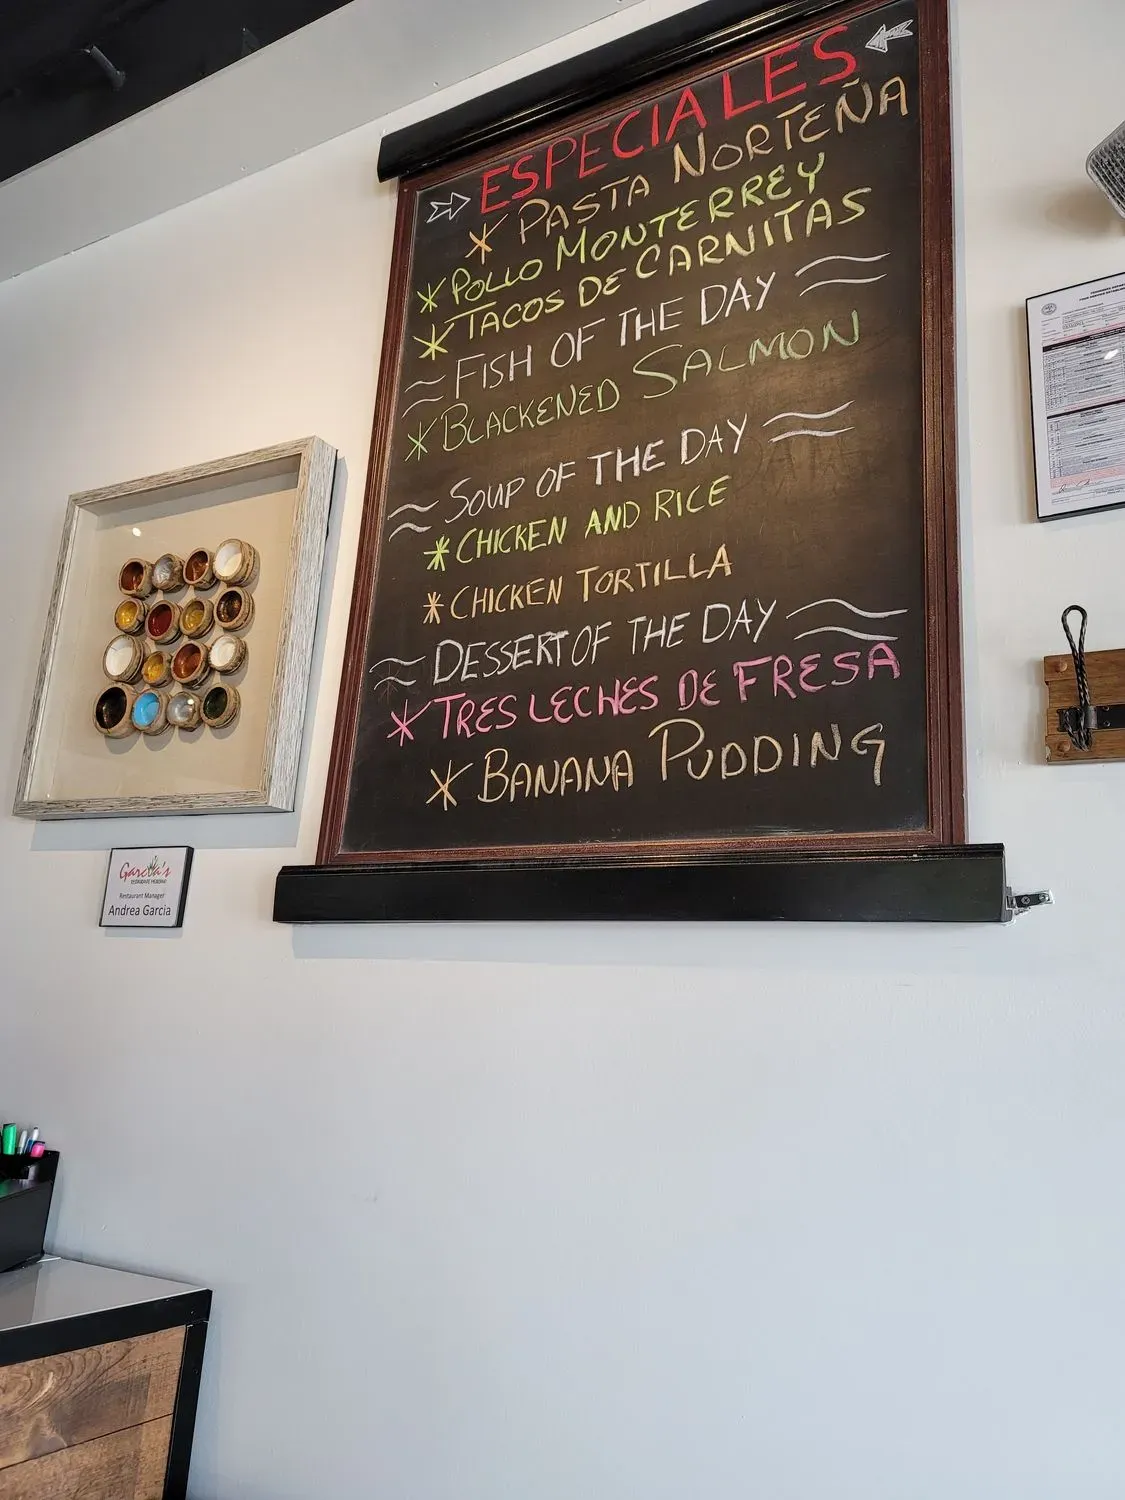 ESPECIALES
PASTA NORTEÑA
POLLO MONTERREY
TACOS DE CARNITAS
FISH OF THE DAY
BLACKENED SALMON
SOUP OF THE DAY
CHICKEN AND RICE
CHICKEN TORTILLA
DESSERT OF THE DAY
TRES LECHES DE FRESA
BANANA PUDDING
Garcia's
Restaurant Manager
Andrea Garcia